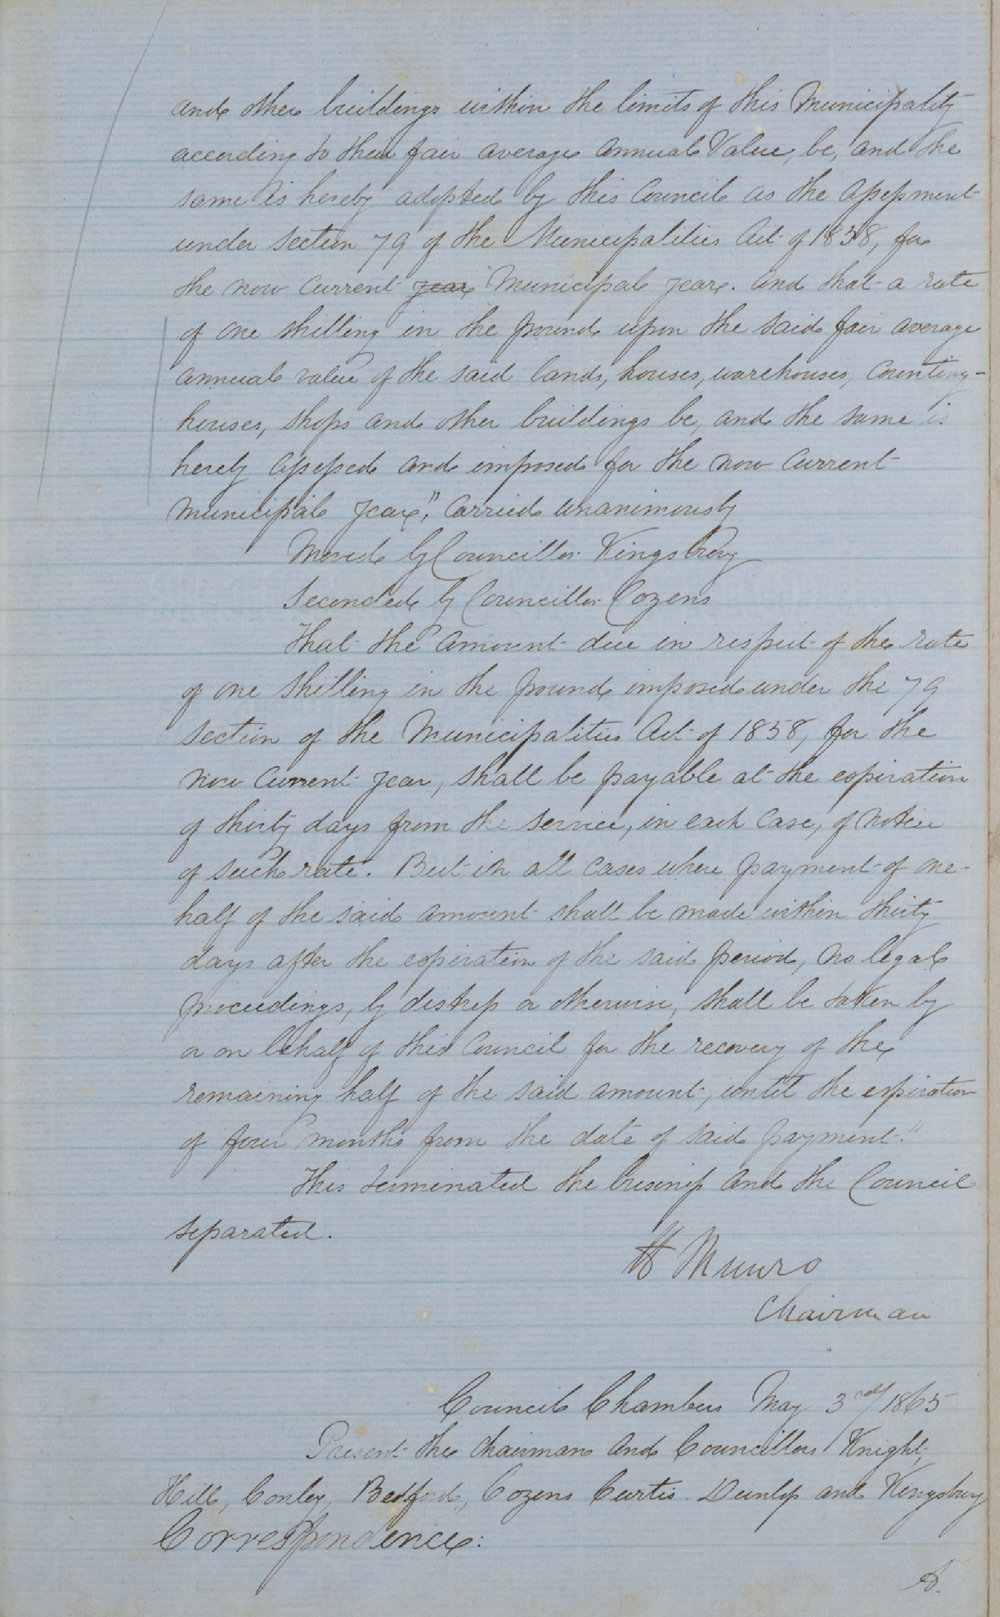 and other buildings within the limits of this Municipality
according to their fair average annual Value, be, and the
same is hereby adopted by this Council as the Assessment
under section 79 of the Municipalities Act of 1858, for
the now current year Municipal year. And that a rate
of one shilling in the pound upon the said fair average
annual value of the said lands, houses, warehouses, Counting-
houses, shops and other buildings be, and the same is
hereby assessed and imposed for the now current
Municipal year," Carried unanimously
Moved by Councillor Kingsbury
Seconded by Councillor Cozens
That the amount due in respect of the rate
of one shilling in the pound imposed under the 79
section of the Municipalities Act of 1858, for the
now current year, shall be payable at the expiration
of thirty days from the service, in each case, of notice
of such rate. But in all cases where payment of one-
half of the said amount shall be made within thirty
days after the expiration of the said period, no legal
proceedings, by distress or otherwise, shall be taken by
or on behalf of this Council for the recovery of the
remaining half of the said amount, until the expiration
of four months from the date of said payment."
This terminated the business and the Council
separated.
H Munro
Chairman
Council Chambers May 3rd/1865
Present the Chairman and Councillors Knight,
Hill, Conley, Bedford, Cozens Curtis Dunlop and Kingsbury
Correspondence:
A.